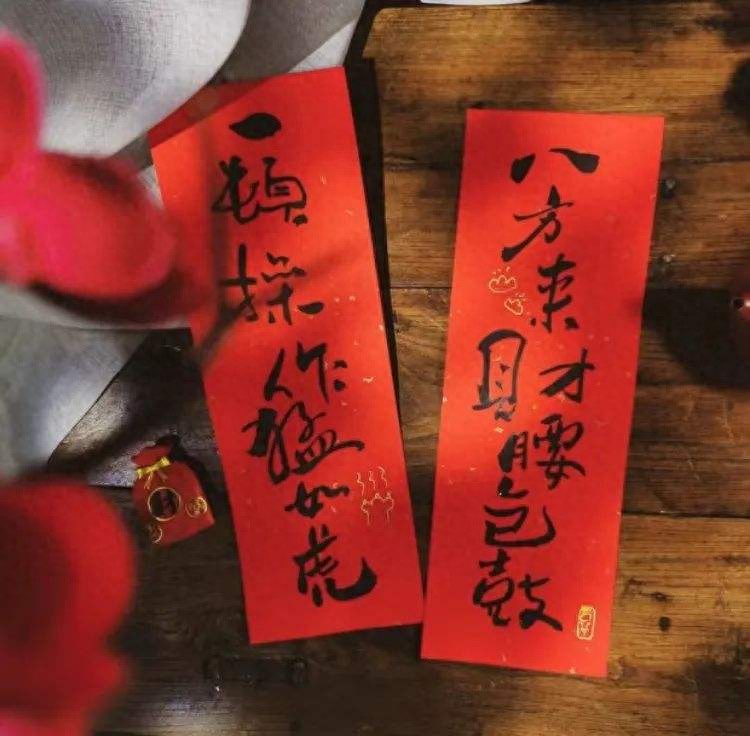 一頓操作猛如虎
八方来財腰包鼓